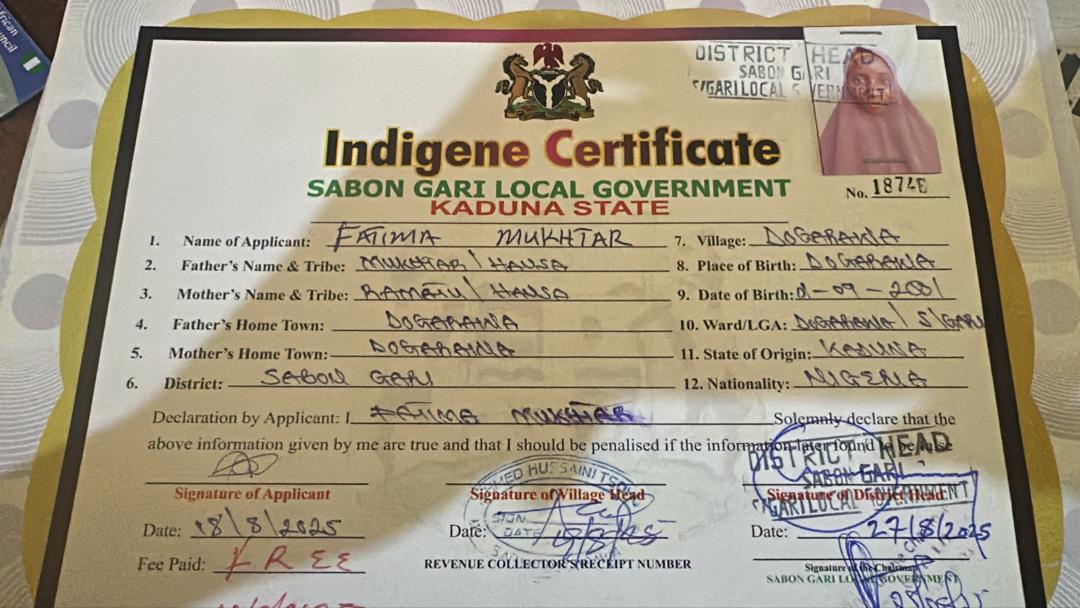 rican
ncil
DISTRICT HEAD
SABON GARI
S/GARI LOCAL GOVERNMENT
Indigene Certificate
SABON GARI LOCAL GOVERNMENT
KADUNA STATE
No. 18746
1. Name of Applicant: FATIMA MUKHTAR
2. Father's Name & Tribe: MUKHTAR / HAUSA
3. Mother's Name & Tribe: RAMATU / HAUSA
4. Father's Home Town: DOGARAWA
5. Mother's Home Town: DOGARAWA
6. District: SABON GARI
7. Village: DOGARAWA
8. Place of Birth: DOGARAWA
9. Date of Birth: -09-2001
10. Ward/LGA: DOGARAWA / S/GARI
11. State of Origin: KADUNA
12. Nationality: NIGERIA
Declaration by Applicant: I FATIMA MUKHTAR Solemnly declare that the
above information given by me are true and that I should be penalised if the information later found to be false
DISTRICT HEAD
SABON GARI
S/GARI LOCAL GOVERNMENT
MED HUSSAINI
SIGN
DATE
Signature of Applicant
Signature of Village Head
Signature of District Head
Date: 18/8/2025
Date:
Date: 27/8/2025
Fee Paid: FREE
REVENUE COLLECTOR'S RECEIPT NUMBER
Signature of the Chairman
SABON GARI LOCAL GOVERNMENT